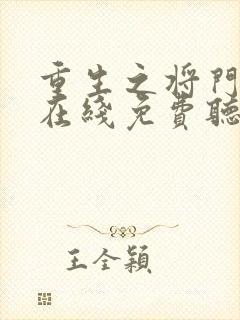 重生之将門
在綫免費聽
王全穎